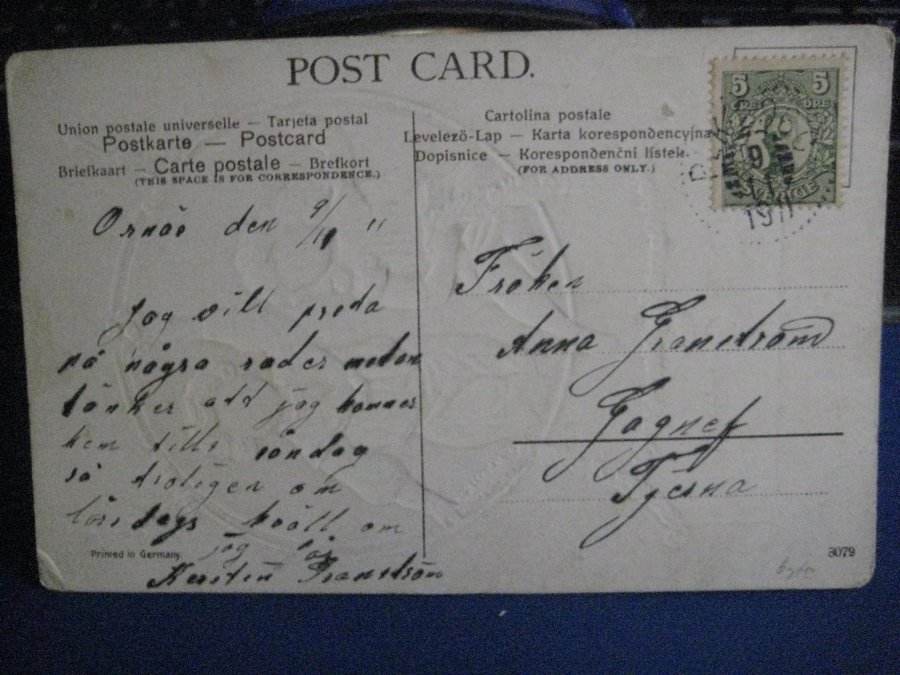 POST CARD.
Union postale universelle — Tarjeta postal
Postkarte — Postcard
Briefkaart — Carte postale — Brefkort
(THIS SPACE IS FOR CORRESPONDENCE.)
Cartolina postale
Levelező-Lap — Karta korespondencyjna
Dopisnice — Korespondenční lístek.
(FOR ADDRESS ONLY.)
5 5
ÖRE ÖRE
SVERIGE
9
1911
Ornäs den 9/11 11
Jag vill preta
på några rader
tänker att jag kommer
hem till söndag
så troligen om
lördags kväll om
jag får
Kersten Granström
Fröken
Anna Granström
Gagnef
Tjerna
Printed in Germany.
3079